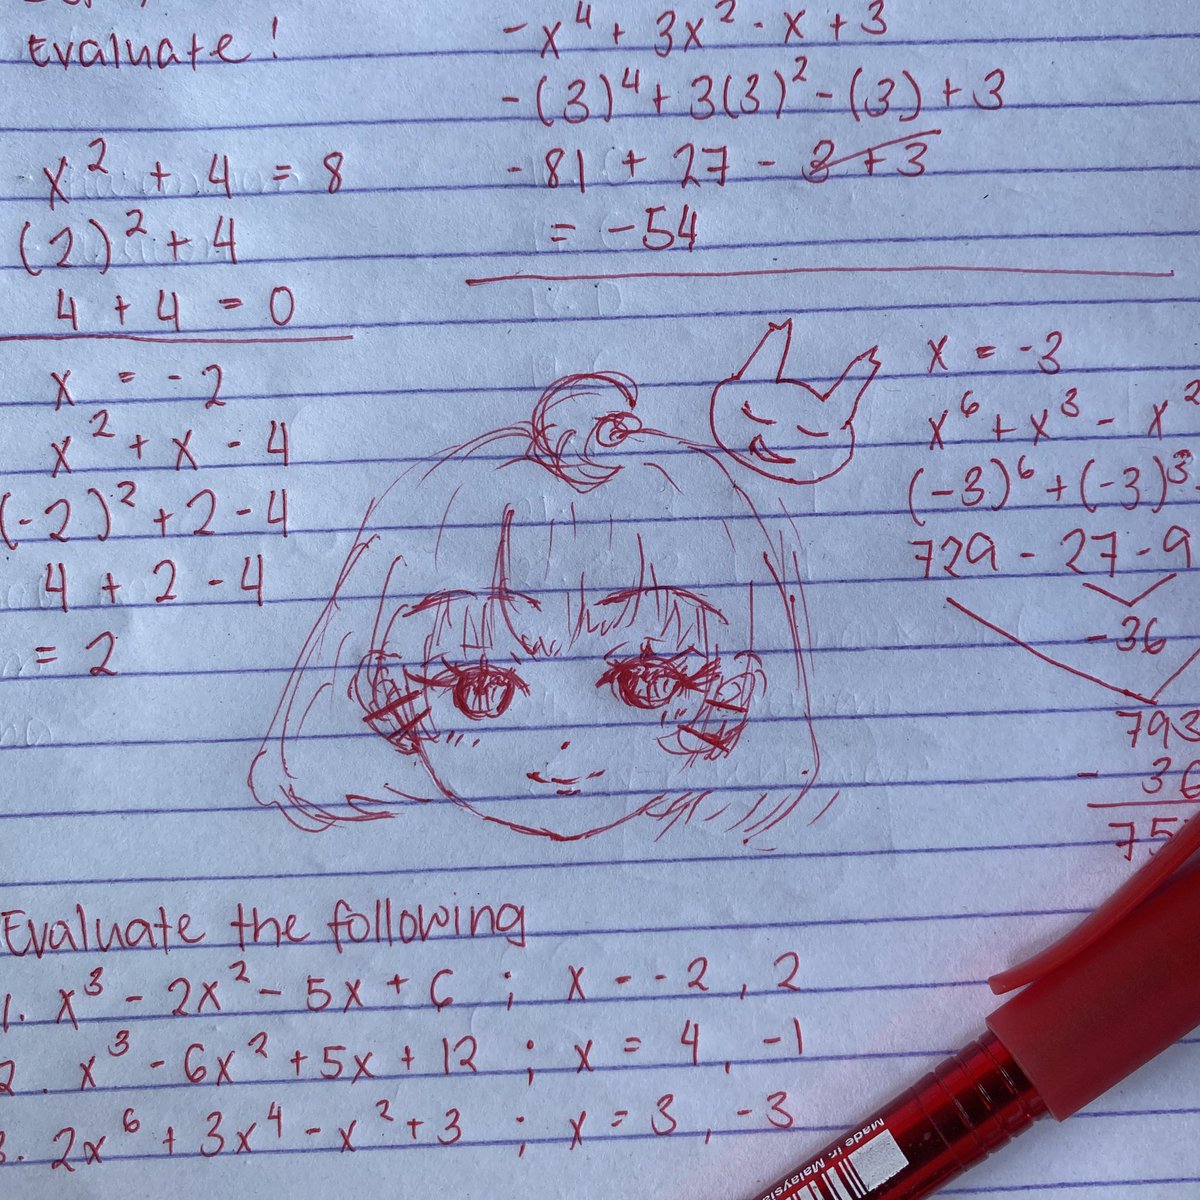 Evaluate!
x² + 4 = 8
(2)² + 4
4 + 4 = 0
x = -2
x² + x - 4
(-2)² + 2 - 4
4 + 2 - 4
= 2
-x⁴ + 3x² - x + 3
-(3)⁴ + 3(3)² - (3) + 3
-81 + 27 - 3 + 3
= -54
x = -3
x⁶ + x³ - x²
(-3)⁶ + (-3)³
729 - 27 - 9
-36
793
- 36
75
Evaluate the following
1. x³ - 2x² - 5x + 6 ; x = -2, 2
2. x³ - 6x² + 5x + 12 ; x = 4, -1
3. 2x⁶ + 3x⁴ - x² + 3 ; x = 3, -3
Made in Malaysia